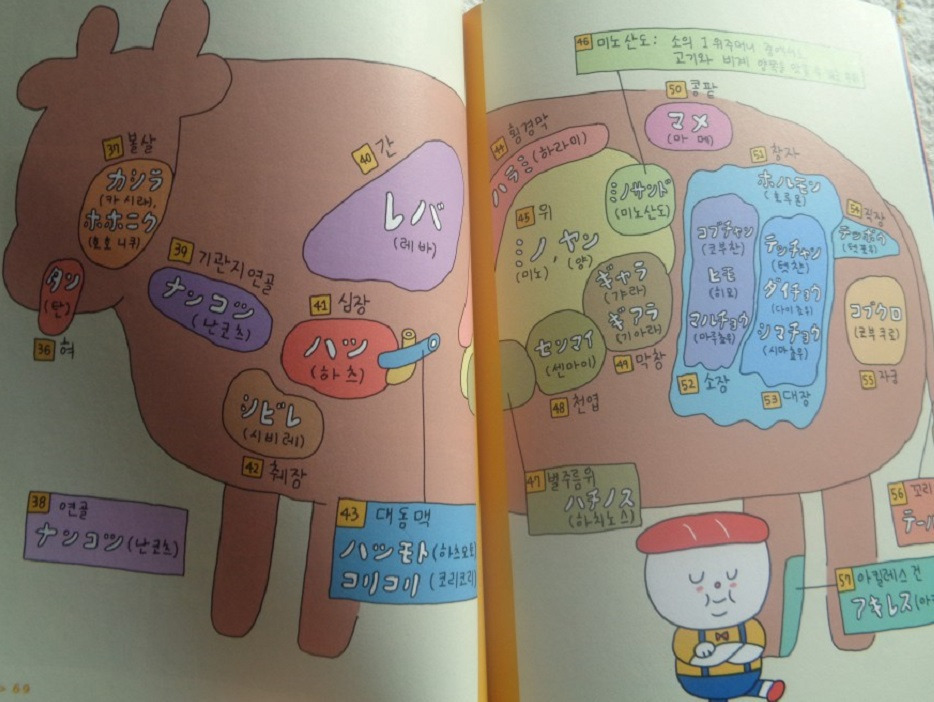 37 볼살
カシラ
(카시래),
ホホニク
(호호니쿠)
タン
(탄)
36 혀
39 기관지연골
ナンコツ
(난코츠)
40 간
レバ
(레바)
41 심장
ハツ
(하츠)
シビレ
(시비레)
42 췌장
38 연골
ナンコツ(난코츠)
43 대동맥
ハツモト(하츠모토
コリコリ(코리코리)
> 69
46 미노산도: 소의 1위주머니
고기와 비계
44 횡경막
ハラミ(하라미)
50 콩팥
マメ
(마메)
ミノサンド
(미노산도)
45 위
ミノ, ヤン
(미노) (양)
ギャラ
(갸라)
ギアラ
(기아라)
49 막창
センマイ
(센마이)
48 천엽
47 벌주름위
ハチノス
(하치노스)
51 창자
ホルモン
(호루몬)
コプチャン
(코부찬)
ヒモ
(히모)
マルチョウ
(마루쵸우)
52 소장
テッチャン
(텟챤)
ダイチョウ
(다이쵸우)
シマチョウ
(시마쵸우)
53 대장
54 직장
テッポウ
(텟포우)
コブクロ
(코부쿠로)
55 자궁
56 꼬리
テール
57 아킬레스건
アキレス(아